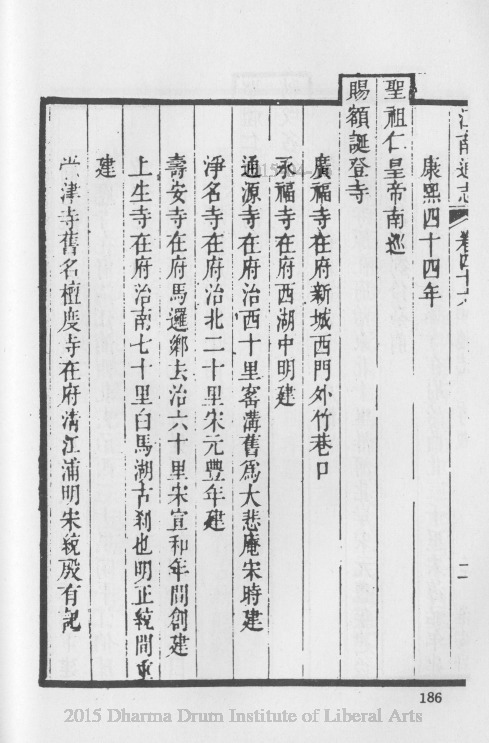 江南通志 卷四十六 二
康熙四十四年
聖祖仁皇帝南巡
賜額誕登寺
廣福寺在府新城西門外竹巷口
永福寺在府西湖中明建
通源寺在府治西十里窰溝舊為大悲庵宋時建
淨名寺在府治北二十里宋元豐年建
壽安寺在府馬邏鄉去治六十里宋宣和年間創建
上生寺在府治南七十里白馬湖古刹也明正統間重
建
津寺舊名檀度寺在府清江浦明宋統殷有記
186
2015 Dharma Drum Institute of Liberal Arts